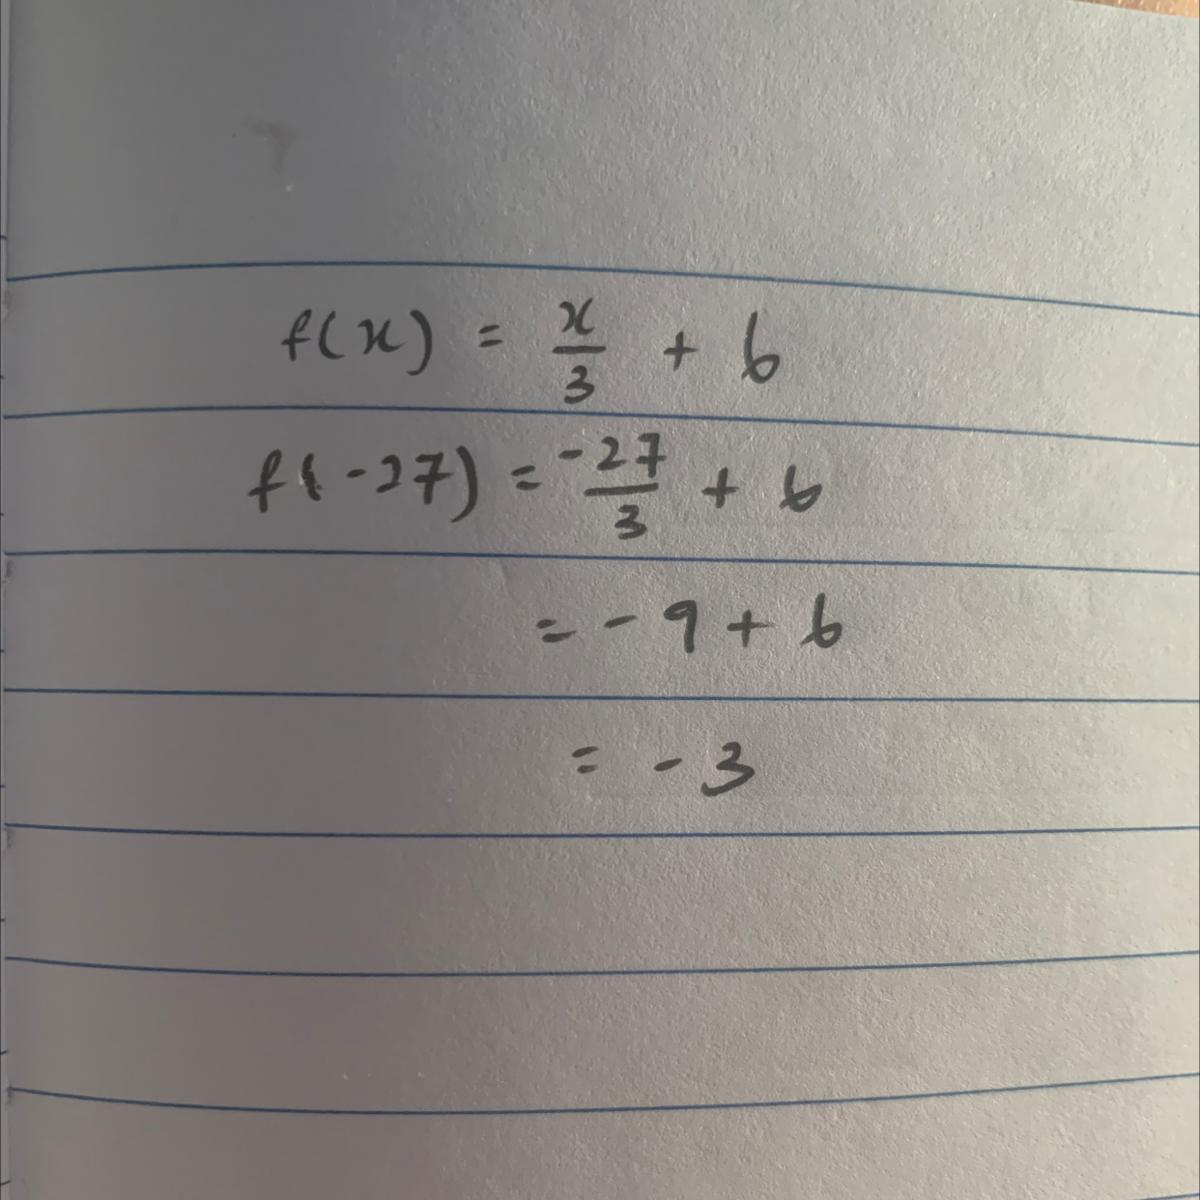 f(x) = x/3 + 6
f(-27) = -27/3 + 6
= -9 + 6
= -3